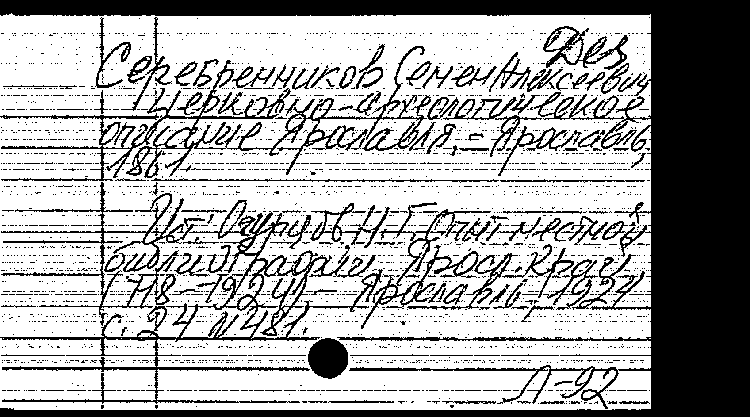 Дез
Серебренников Семен Алексеевич
Церковно-археологическое
описание Ярославля. - Ярославль,
1861.
Ист.: Огурцов Н.Г. Опыт местной
библиографии. Яросл. край
(1718-1924). - Ярославль, 1924,
с. 24 № 481.
Л-92